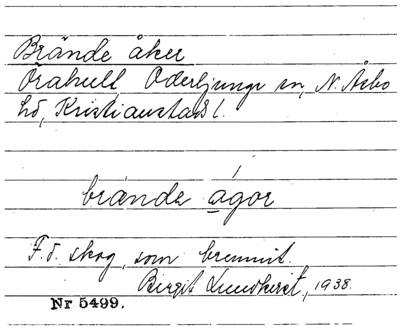 Brände åker
Örahult Oderljunga sn, N. Åsbo
hd, Kristianstads l.
brände ágor
F.d. skog, som brunnit.
Birgit Lundkvist, 1938.
Nr 5499.